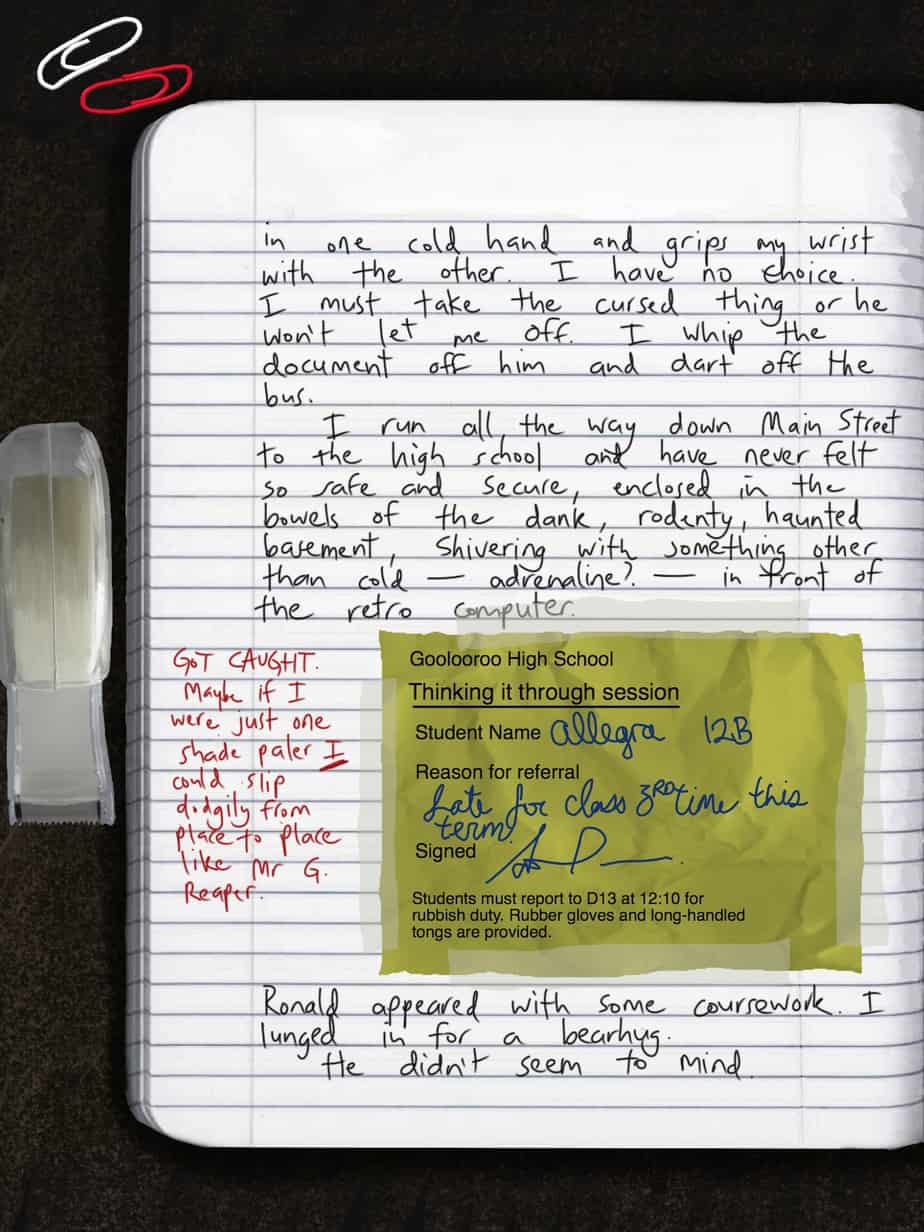 in one cold hand and grips my wrist
with the other. I have no choice.
I must take the cursed thing or he
won't let me off. I whip the
document off him and dart off the
bus.
I run all the way down Main Street
to the high school and have never felt
so safe and secure, enclosed in the
bowels of the dank, rodenty, haunted
basement, shivering with something other
than cold — adrenaline? — in front of
the retro computer.
GOT CAUGHT.
Maybe if I
were just one
shade paler I
could slip
didgily from
place to place
like Mr G.
Reaper.
Goolooroo High School
Thinking it through session
Student Name allegra 12B
Reason for referral
Late for class 3RD time this
term.
Signed
Students must report to D13 at 12:10 for
rubbish duty. Rubber gloves and long-handled
tongs are provided.
Ronald appeared with some coursework. I
lunged in for a bearhug.
He didn't seem to mind.